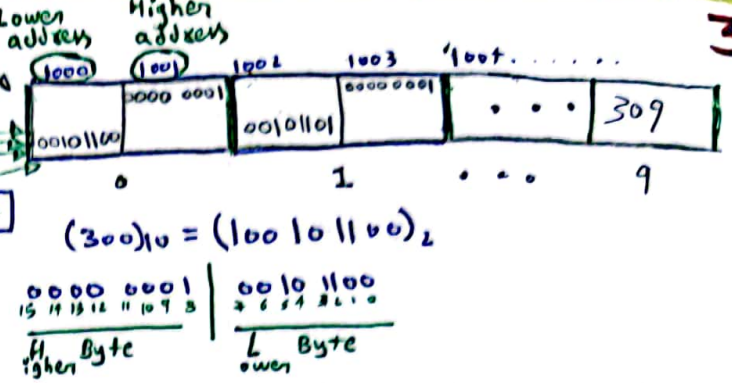 Lower Higher
address address
1000 1001 1002 1003 1004. . . . . .
0000 0001 00000001
00101100 00101101 . . . 309
0 1 . . . 9
(300)10 = (100101100)2
0000 0001 | 0010 1100
15 14 13 12 11 10 9 8 7 6 5 4 3 2 1 0
Higher Byte Lower Byte